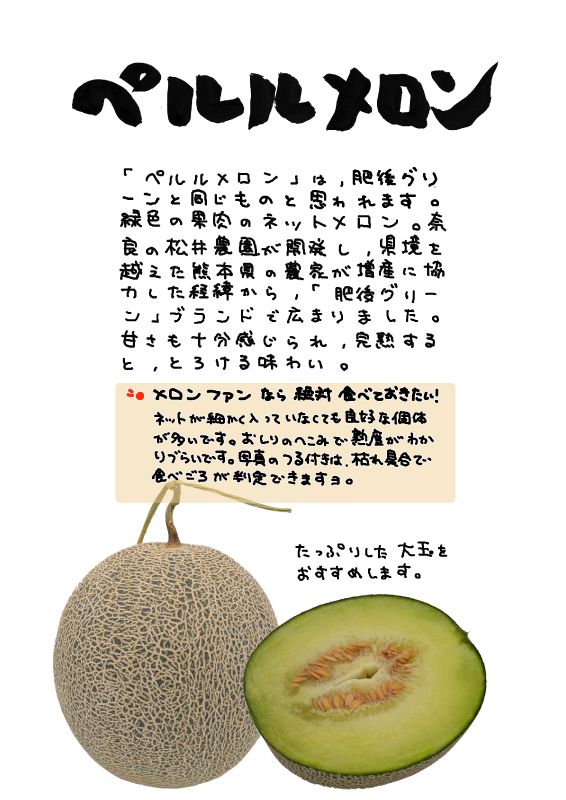 ペルルメロン
「ペルルメロン」は,肥後グリ
ーンと同じものと思われます。
緑色の果肉のネットメロン。奈
良の松井農園が開発し,県境を
越えた熊本県の農家が増産に協
力した経緯から,「肥後グリー
ン」ブランドで広まりました。
甘さも十分感じられ,完熟する
と,とろける味わい。
メロンファンなら絶対食べておきたい!
ネットが細かく入っていなくても良好な個体
が多いです。おしりのへこみで熟度がわか
りづらいです。写真のつる付きは、枯れ具合で
食べごろが判定できますヨ。
たっぷりした大玉を
おすすめします。